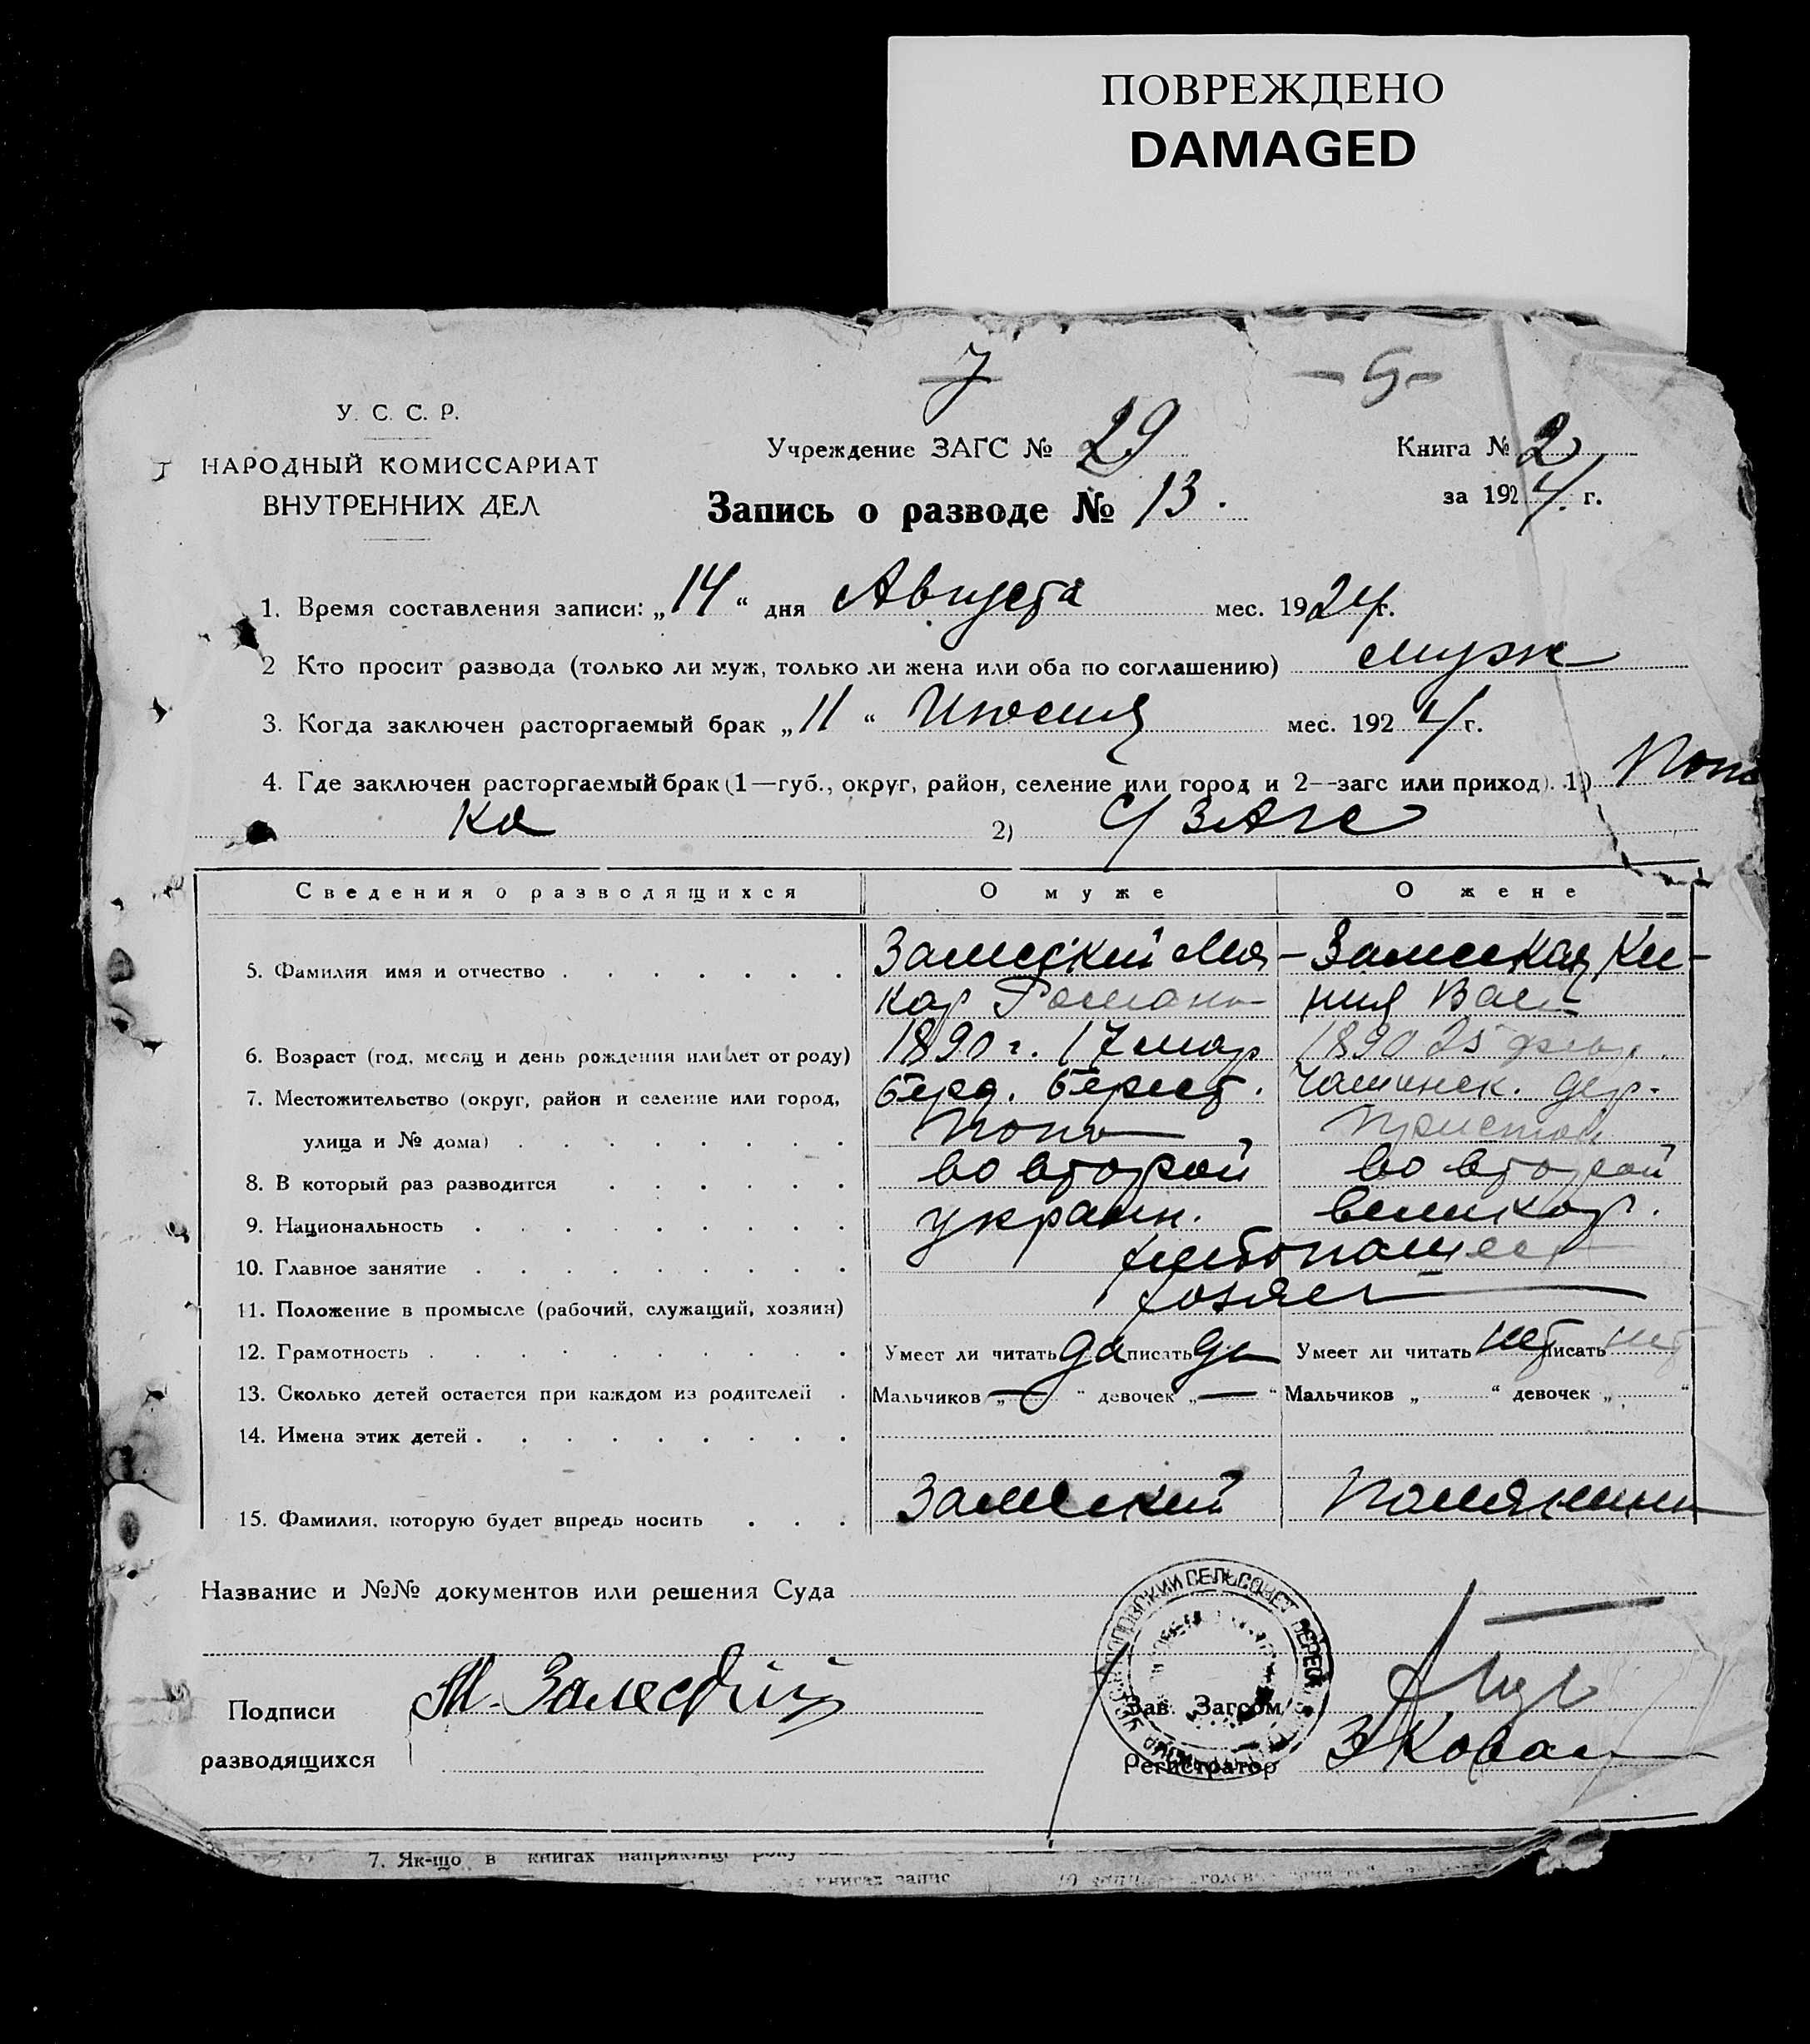 ПОВРЕЖДЕНО
DAMAGED
7
- 5 -
У. С. С. Р.
НАРОДНЫЙ КОМИССАРИАТ
ВНУТРЕННИХ ДЕЛ
Учреждение ЗАГС № 29
Книга № 2
за 1924 г.
Запись о разводе № 13.
1. Время составления записи: „14“ дня Августа мес. 1924 г.
2 Кто просит развода (только ли муж, только ли жена или оба по соглашению) муж
3. Когда заключен расторгаемый брак „11“ Июня мес. 1924 г.
4. Где заключен расторгаемый брак (1—губ., округ, район, селение или город и 2—загс или приход). 1) Попо
ка 2) С/ЗАГС
Сведения о разводящихся О муже О жене
5. Фамилия имя и отчество Залеский Ма- Залеская Кси-
кар Роман ния Вас
6. Возраст (год, месяц и день рождения или лет от роду) 1890 г. 17 мар 1890 25
7. Местожительство (округ, район и селение или город, Берд. Берест. дер.
улица и № дома) Попо
8. В который раз разводится во второй во второй
9. Национальность украин. великор.
10. Главное занятие хлебопашест
11. Положение в промысле (рабочий, служащий, хозяин) хозяев
12. Грамотность Умеет ли читать да писать да Умеет ли читать нет писать нет
13. Сколько детей остается при каждом из родителей Мальчиков „—“ девочек „—“ Мальчиков „ “ девочек „ “
14. Имена этих детей
15. Фамилия, которую будет впредь носить Залеский
Название и №№ документов или решения Суда
СЕЛЬСОВЕТ
Подписи М. Залеский Зав. Загсом
разводящихся Регистратор
7. Як-що в книгах наприкінці року
книгах запис